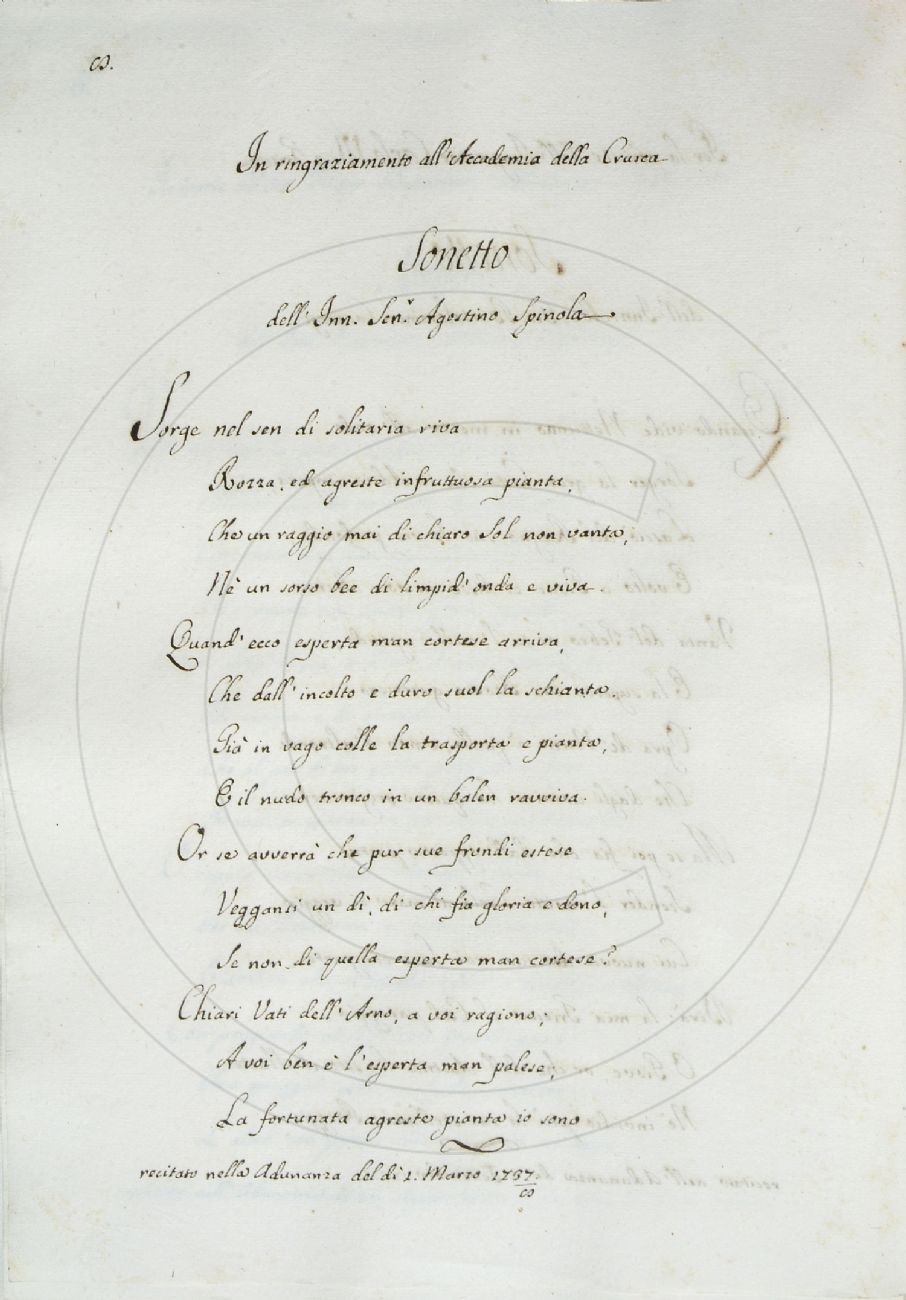 In ringraziamento all'Accademia della Crusca
Sonetto
dell' Inn. Senr. Agostino Spinola
Sorge nel sen di solitaria riva
Rozza, ed agreste infruttuosa pianta,
Che un raggio mai di chiaro Sol non vanta,
Nè un sorso bee di limpid' onda e viva.
Quand' ecco esperta man cortese arriva,
Che dall' incolto e duro suol la schianta,
Già in vago colle la trasporta e pianta,
E il nudo tronco in un balen ravviva.
Or se avverrà che pur sue frondi estese
Veggansi un dì, di chi fia gloria e dono,
Se non di quella esperta man cortese?
Chiari Vati dell' Arno, a voi ragiono;
A voi ben è l'esperta man palese;
La fortunata agreste pianta io sono
recitato nella Adunanza del dì 1. Marzo 1787.